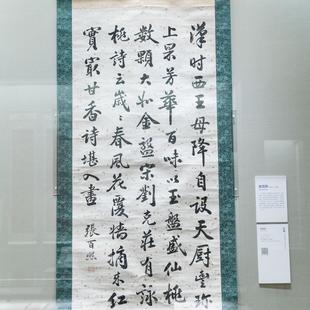 漢时西王母降自設天厨豐珍
上果芳華百味以玉盤盛仙桃
數顆大如金盤宋劉克莊有詠
桃詩云歲〻春風花覆墻摘来紅
實最甘香詩堪入畫 張百熙